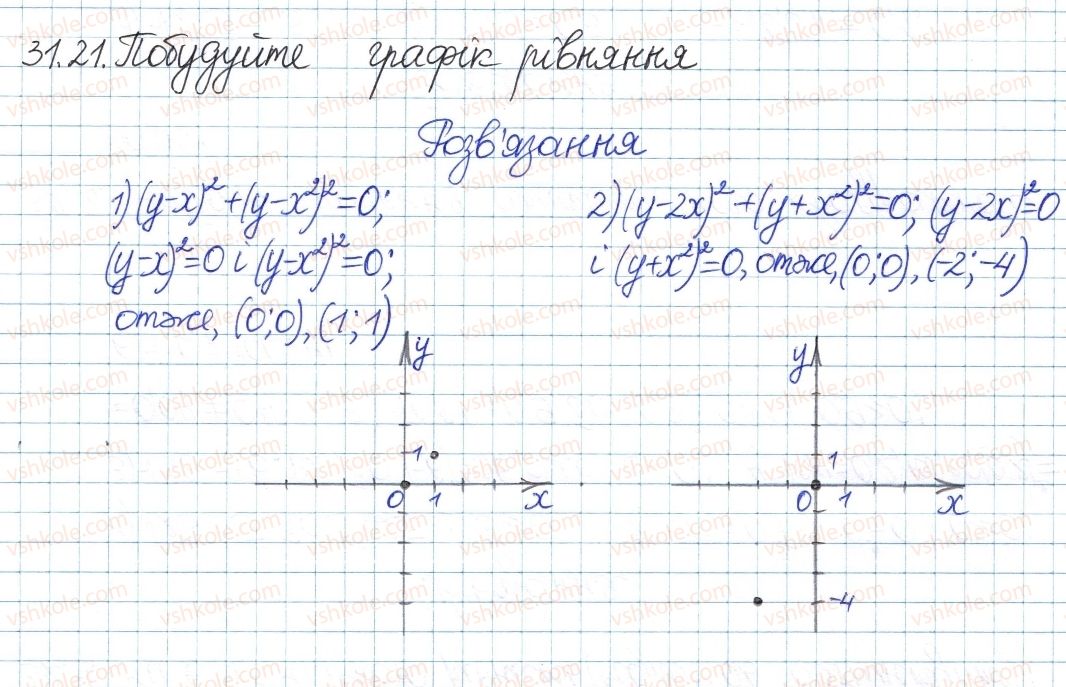 31.21. Побудуйте графік рівняння
Розв'язання
1) (y-x)²+(y-x²)²=0;
(y-x)²=0 і (y-x²)²=0;
отже, (0;0), (1;1)
2) (y-2x)²+(y+x²)²=0; (y-2x)²=0
і (y+x²)²=0, отже, (0;0), (-2;-4)
y
1
0 1 x
y
1
0 1 x
-4
vshkole.com